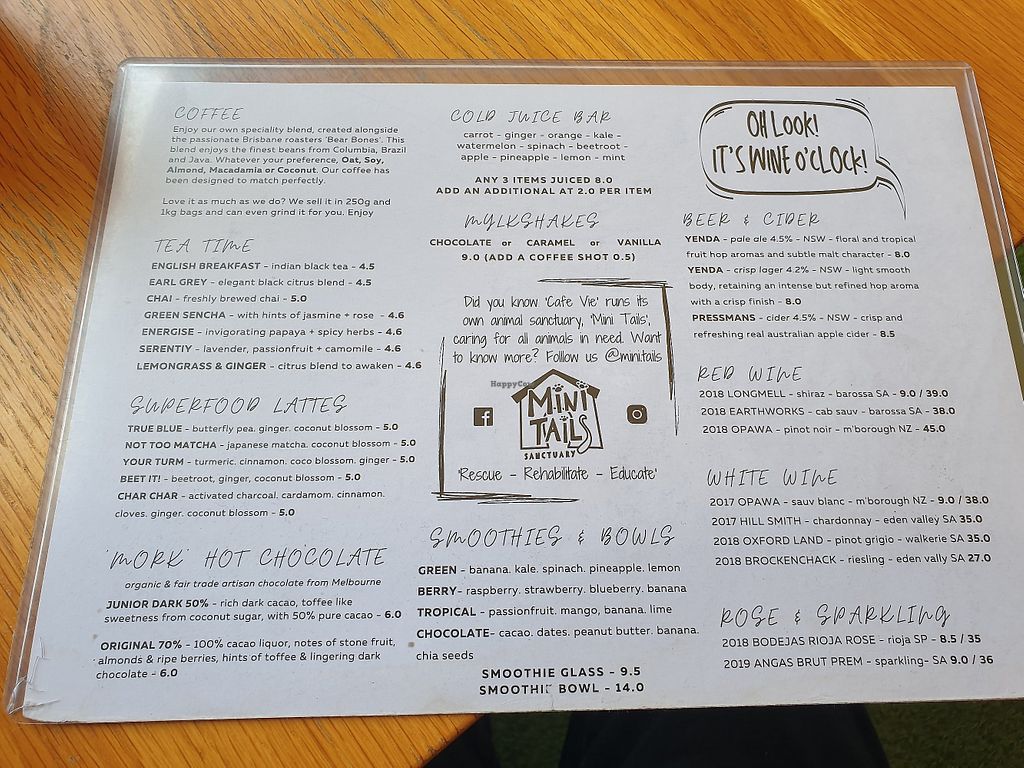 COFFEE
Enjoy our own speciality blend, created alongside
the passionate Brisbane roasters 'Bear Bones'. This
blend enjoys the finest beans from Columbia, Brazil
and Java. Whatever your preference, Oat, Soy,
Almond, Macadamia or Coconut. Our coffee has
been designed to match perfectly.
Love it as much as we do? We sell it in 250g and
1kg bags and can even grind it for you. Enjoy
TEA TIME
ENGLISH BREAKFAST - indian black tea - 4.5
EARL GREY - elegant black citrus blend - 4.5
CHAI - freshly brewed chai - 5.0
GREEN SENCHA - with hints of jasmine + rose - 4.6
ENERGISE - invigorating papaya + spicy herbs - 4.6
SERENTIY - lavender, passionfruit + camomile - 4.6
LEMONGRASS & GINGER - citrus blend to awaken - 4.6
SUPERFOOD LATTES
TRUE BLUE - butterfly pea. ginger. coconut blossom - 5.0
NOT TOO MATCHA - japanese matcha. coconut blossom - 5.0
YOUR TURM - turmeric. cinnamon. coco blossom. ginger - 5.0
BEET IT! - beetroot, ginger, coconut blossom - 5.0
CHAR CHAR - activated charcoal. cardamom. cinnamon.
cloves. ginger. coconut blossom - 5.0
'MORK' HOT CHOCOLATE
organic & fair trade artisan chocolate from Melbourne
JUNIOR DARK 50% - rich dark cacao, toffee like
sweetness from coconut sugar, with 50% pure cacao - 6.0
ORIGINAL 70% - 100% cacao liquor, notes of stone fruit,
almonds & ripe berries, hints of toffee & lingering dark
chocolate - 6.0
COLD JUICE BAR
carrot - ginger - orange - kale -
watermelon - spinach - beetroot -
apple - pineapple - lemon - mint
ANY 3 ITEMS JUICED 8.0
ADD AN ADDITIONAL AT 2.0 PER ITEM
MYLKSHAKES
CHOCOLATE or CARAMEL or VANILLA
9.0 (ADD A COFFEE SHOT 0.5)
Did you know 'Cafe Vie' runs its
own animal sanctuary, 'Mini Tails',
caring for all animals in need. Want
to know more? Folllow us @minitails
HappyCow
MINI
TAILS
SANCTUARY
'Rescue - Rehabilitate - Educate'
SMOOTHIES & BOWLS
GREEN - banana. kale. spinach. pineapple. lemon
BERRY- raspberry. strawberry. blueberry. banana
TROPICAL - passionfruit. mango, banana. lime
CHOCOLATE- cacao. dates. peanut butter. banana.
chia seeds
SMOOTHIE GLASS - 9.5
SMOOTHIE BOWL - 14.0
OH LOOK!
IT'S WINE O'CLOCK!
BEER & CIDER
YENDA - pale ale 4.5% - NSW - floral and tropical
fruit hop aromas and subtle malt character - 8.0
YENDA - crisp lager 4.2% - NSW - light smooth
body, retaining an intense but refined hop aroma
with a crisp finish - 8.0
PRESSMANS - cider 4.5% - NSW - crisp and
refreshing real australian apple cider - 8.5
RED WINE
2018 LONGMELL - shiraz - barossa SA - 9.0 / 39.0
2018 EARTHWORKS - cab sauv - barossa SA - 38.0
2018 OPAWA - pinot noir - m'borough NZ - 45.0
WHITE WINE
2017 OPAWA - sauv blanc - m'borough NZ - 9.0 / 38.0
2017 HILL SMITH - chardonnay - eden valley SA 35.0
2018 OXFORD LAND - pinot grigio - walkerie SA 35.0
2018 BROCKENCHACK - riesling - eden vally SA 27.0
ROSE & SPARKLING
2018 BODEJAS RIOJA ROSE - rioja SP - 8.5 / 35
2019 ANGAS BRUT PREM - sparkling- SA 9.0 / 36